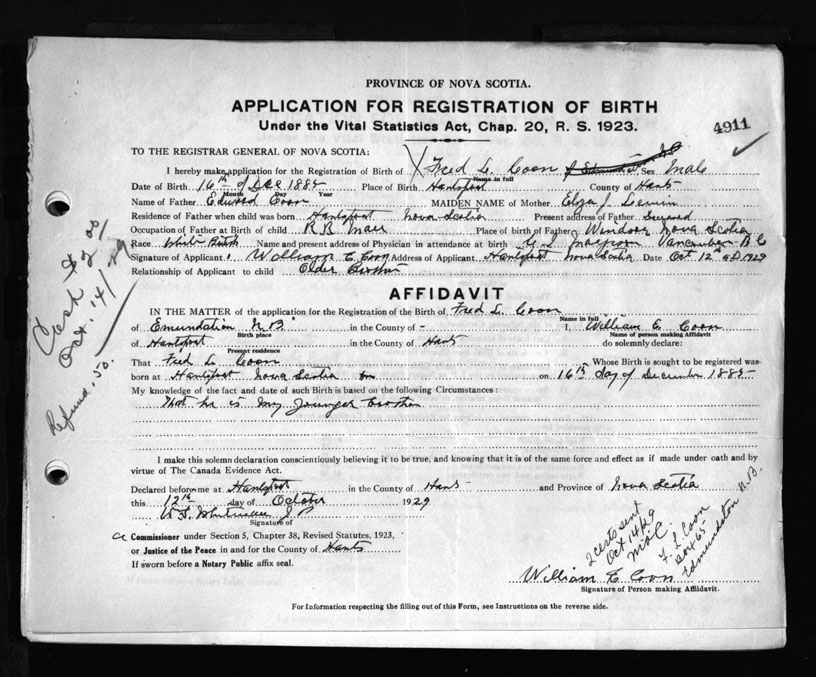 PROVINCE OF NOVA SCOTIA.
APPLICATION FOR REGISTRATION OF BIRTH
Under the Vital Statistics Act, Chap. 20, R. S. 1923.
4911
TO THE REGISTRAR GENERAL OF NOVA SCOTIA:
I hereby make application for the Registration of Birth of Fred L. Coon Sex Male
Name in full
Date of Birth 16th of Dec 1885 Place of Birth Hantsport County of Hants
Month Day Year
Name of Father Edward Coon MAIDEN NAME of Mother Eliza J.
Residence of Father when child was born Hantsport Nova Scotia Present address of Father
Occupation of Father at Birth of child R.R. Man Place of birth of Father Windsor Nova Scotia
Race White Name and present address of Physician in attendance at birth Vancouver B C
Signature of Applicant William E Coon Address of Applicant Hantsport Nova Scotia Date Oct 12th AD 1929
Relationship of Applicant to child Older Brother
AFFIDAVIT
IN THE MATTER of the application for the Registration of the Birth of Fred L. Coon
Name in full
of Emundston N.B. in the County of - I, William E Coon
Birth place Name of person making Affidavit
of Hantsport in the County of Hants do solemnly declare:
Present residence
That Fred L. Coon Whose Birth is sought to be registered was
born at Hantsport Nova Scotia on on 16th Day of December 1885
My knowledge of the fact and date of such Birth is based on the following Circumstances:
That he is my Younger Brother
I make this solemn declaration conscientiously believing it to be true, and knowing that it is of the same force and effect as if made under oath and by
virtue of The Canada Evidence Act.
Declared before me at Hantsport in the County of Hants and Province of Nova Scotia
this 12th day of October 1929
Whitman J P
Signature of
a Commissioner under Section 5, Chapter 38, Revised Statutes, 1923,
or Justice of the Peace in and for the County of Hants
If sworn before a Notary Public affix seal.
William E Coon
Signature of Person making Affidavit.
For Information respecting the filling out of this Form, see Instructions on the reverse side.
Cash $2.00
Oct. 14/29
Refund .50.
2 cents sent
Oct 14/29
F. L Coon
Box 65
Edmundston N.B.